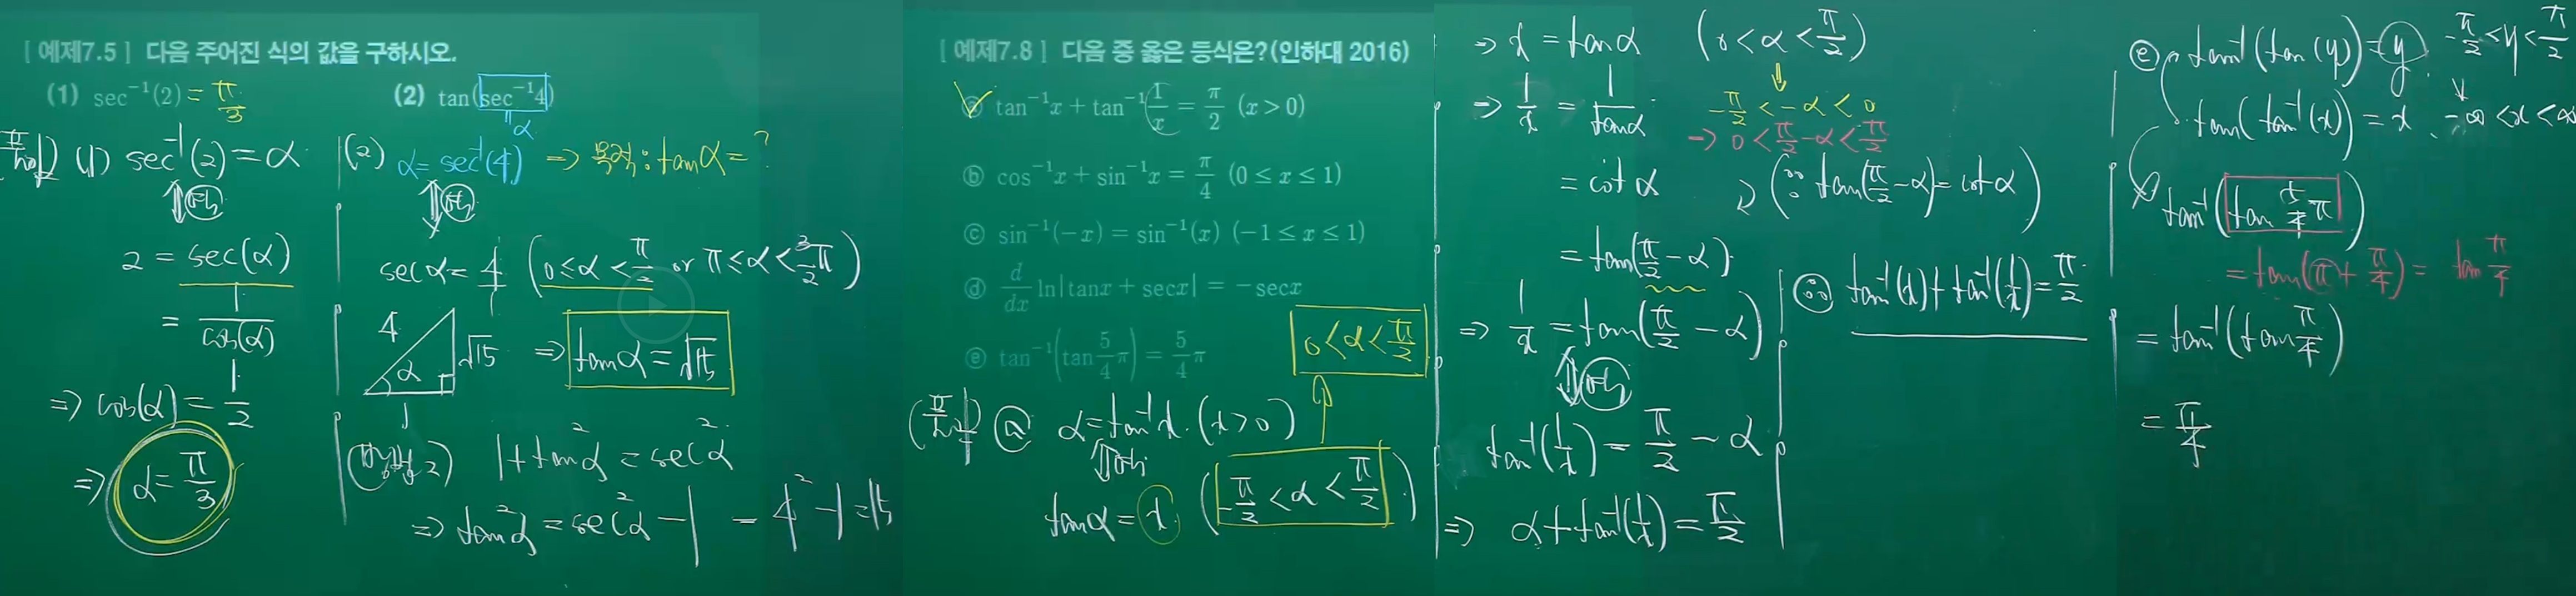 [ 예제7.5 ] 다음 주어진 식의 값을 구하시오.
(1) sec⁻¹(2) = π/3
(2) tan(sec⁻¹4)
α
(1) sec⁻¹(2) = α
2 = sec(α)
= 1/cos(α)
⇒ cos(α) = 1/2
⇒ α = π/3
(2) α = sec⁻¹(4) ⇒ 목적 : tanα = ?
secα = 4/1 (0 ≤ α < π/2 or π ≤ α < 3/2 π)
4 α √15 1
⇒ tanα = √15
(방법2) 1 + tan²α = sec²α
⇒ tan²α = sec²α − 1 = 4² − 1 = 15
[ 예제7.8 ] 다음 중 옳은 등식은? (인하대 2016)
ⓐ tan⁻¹x + tan⁻¹ 1/x = π/2 (x > 0)
ⓑ cos⁻¹x + sin⁻¹x = π/4 (0 ≤ x ≤ 1)
ⓒ sin⁻¹(−x) = sin⁻¹(x) (−1 ≤ x ≤ 1)
ⓓ d/dx ln|tanx + secx| = −secx
ⓔ tan⁻¹(tan 5/4 π) = 5/4 π
0 < α < π/2
ⓐ α = tan⁻¹x. (x > 0)
tanα = x. (−π/2 < α < π/2)
⇒ x = tanα (0 < α < π/2)
⇒ 1/x = 1/tanα
−π/2 < −α < 0
⇒ 0 < π/2 − α < π/2
= cotα (∵ tan(π/2 − α) = cotα)
= tan(π/2 − α)
⇒ 1/x = tan(π/2 − α)
tan⁻¹(1/x) = π/2 − α
⇒ α + tan⁻¹(1/x) = π/2
∴ tan⁻¹(x) + tan⁻¹(1/x) = π/2
ⓔ tan⁻¹(tan(y)) = y. −π/2 < y < π/2
tan(tan⁻¹(x)) = x. −∞ < x < ∞
tan⁻¹(tan 5/4 π)
= tan(π + π/4) = tan π/4
= tan⁻¹(tan π/4)
= π/4